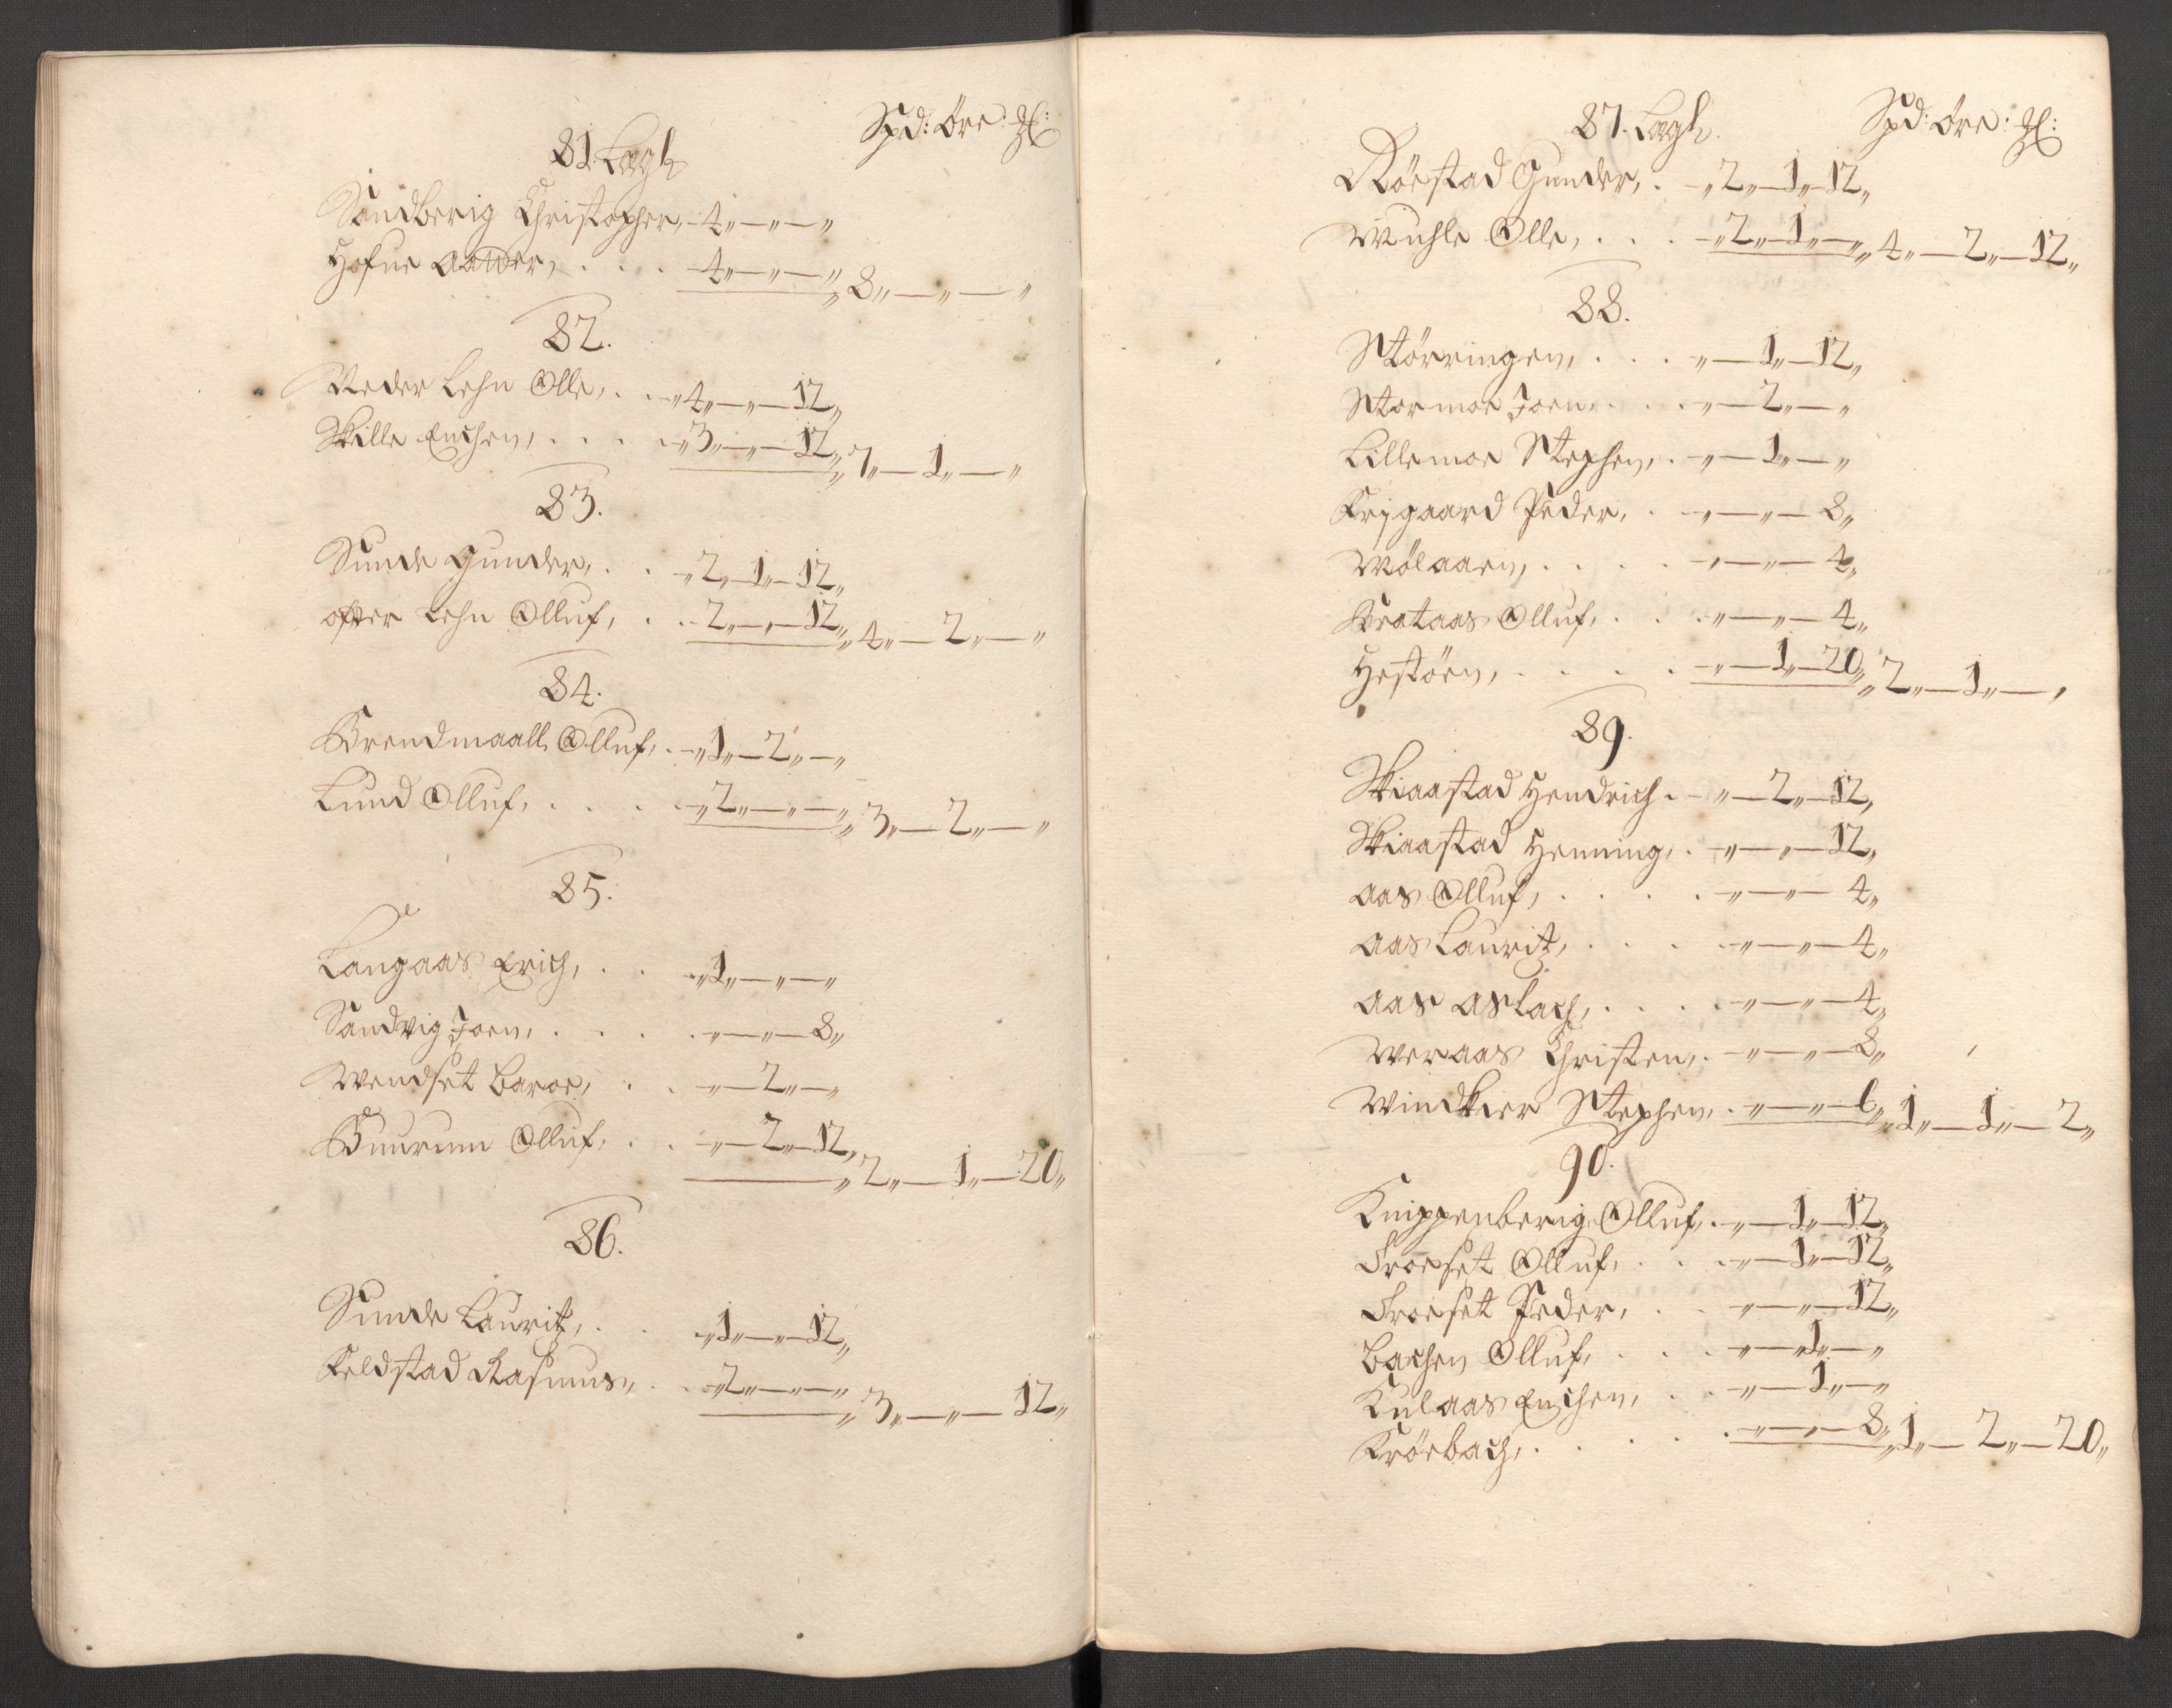 81. Lægh Spd: Öre: Ƶ:
Sandberig Christopher, 4„—„—„
Hofne Aamder, . . . 4„—„—„ 8„—„—„
82.
Neder Lehn Olle, . . „4„—„—12„
Skille Enchen, . . . . „3„—„—12„ 7„—1„—„
83.
Sunde Gunder, . . „2„—1„—12„
ofver Lehn Olluf, . . 2„—„—12„ 4„—2„—„
84.
Brendmaall Olluf, . „1„—2„—„
Lund Olluf, . . . . „2„—„—„ 3„—2„—„
85.
Langaas Erich, . . „1„—„—„
Sandvig Joen, . . . . „—„—8„
Wendset Baroe, . . „—2„—„
Buurum Olluf, . . „—2„—12„ 2„—1„—20„
86.
Sunde Lauritz, . . „1„—„—12„
Feldstad Rasmus, . . „2„—„—„ 3„—„—12„
87. Lægh. Spd: Öre: Ƶ:
Röestad Gunder, . „2„—1„—12„
Muhle Olle, . . . „2„—1„—„ 4„—2„—12„
88.
Störringen, . . . „—1„—12„
Stormoe Joen, . . . „—2„—„
Lillemoe Stephen, . „—1„—„
Krigaard Peder, . „—„—8„
Mölaaen, . . . . „—„—4„
Brataas Olluf, . . . „—„—4„
Hestöen, . . . . „—1„—20„ 2„—1„—„
89.
Skiaastad Hendrich . „—2„—12„
Skiaastad Henning, . „—„—12„
Aas Olluf, . . . . „—„—4„
Aas Lauritz, . . . . „—„—4„
Aas Aslach, . . . . „—„—4„
Weraas Christen, . „—„—8„
Windkier Stephen, . „—„—6„ 1„—1„—2„
90.
Knippenberig Olluf, . „—1„—12„
Froeset Olluf, . . . „—1„—12„
Froeset Peder, . . „—„—12„
Bachen Olluf, . . . „—1„—„
Kulaas Enchen, . . „—1„—„
Kröebach, . . . . . „—„—8„ 1„—2„—20„